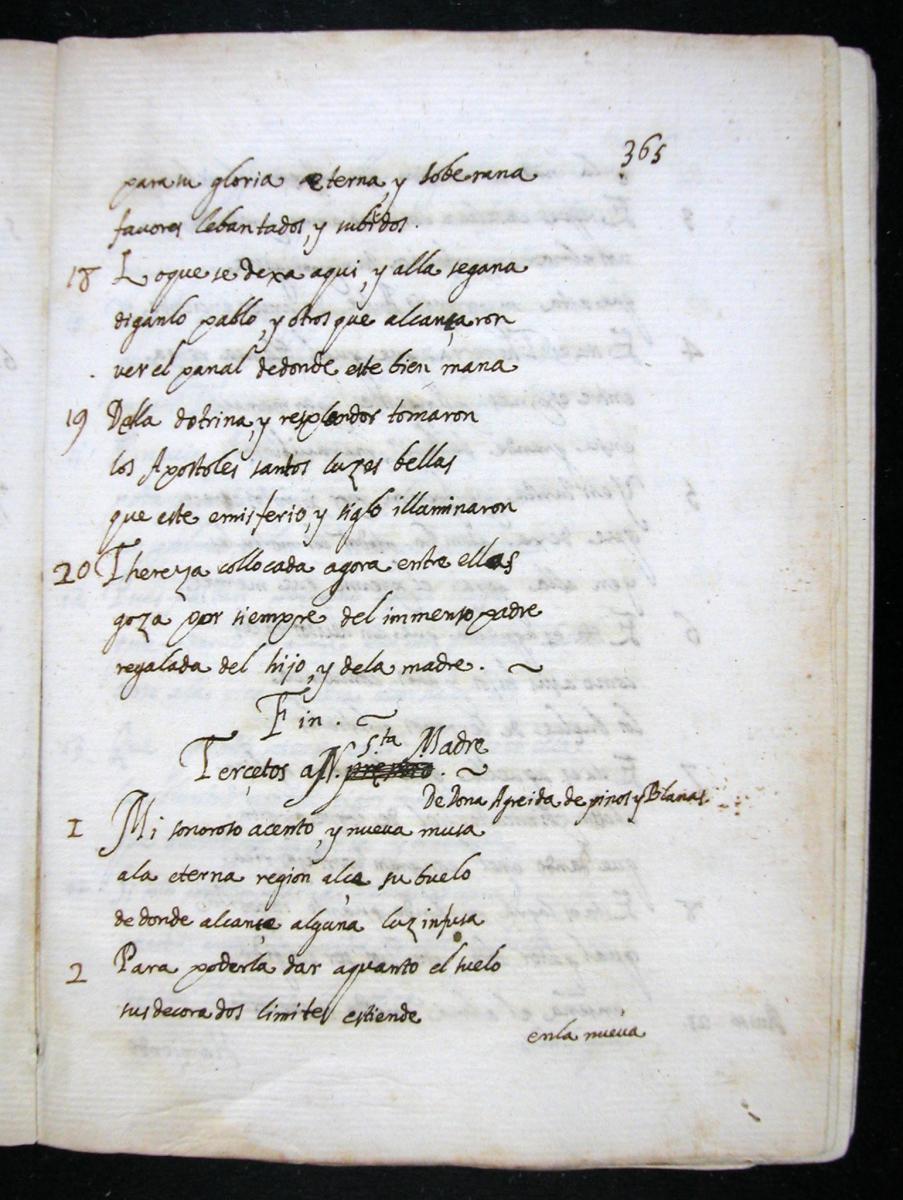 365
para su gloria eterna, y soberana
favores lebantados, y subidos.
18 Lo que se dexa aqui, y alla se gana
diganlo pablo, y otros que alcançaron
ver el panal de donde este bien mana
19 Della dotrina, y resplandor tomaron
los Apostoles santos luzes bellas
que este emisferio, y siglo illuminaron
20 Thereza collocada agora entre ellas
goza por siempre del immenso padre
regalada del hijo, y dela madre.
Fin.
Sta Madre
Terçetos a N.
De Dona de pinos y Blanas
1 Mi sonoroso acento, y nueva musa
ala eterna region alce su buelo
de donde alcançe alguna luz infusa
2 Para poderla dar a quanto el suelo
sus decorados limites estiende
en la nueva